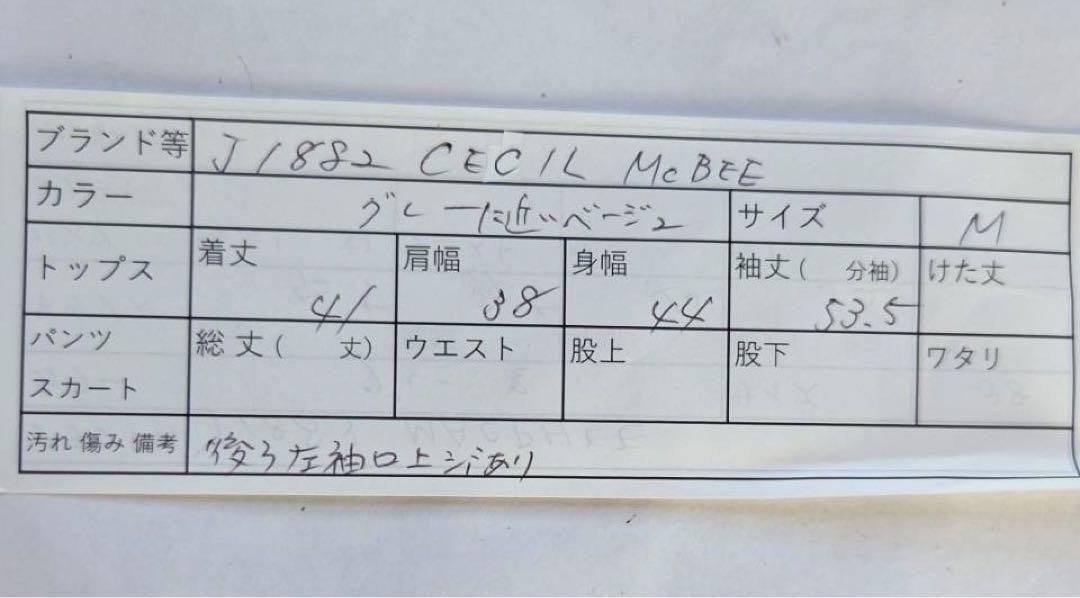 ブランド等 J1882 CECIL McBEE
カラー グレーに近いベージュ サイズ M
トップス 着丈 41 肩幅 38 身幅 44 袖丈( 分袖) 53.5 けた丈
パンツ スカート 総丈( 丈) ウエスト 股上 股下 ワタリ
汚れ 傷み 備考 後ろ左袖口上シミあり